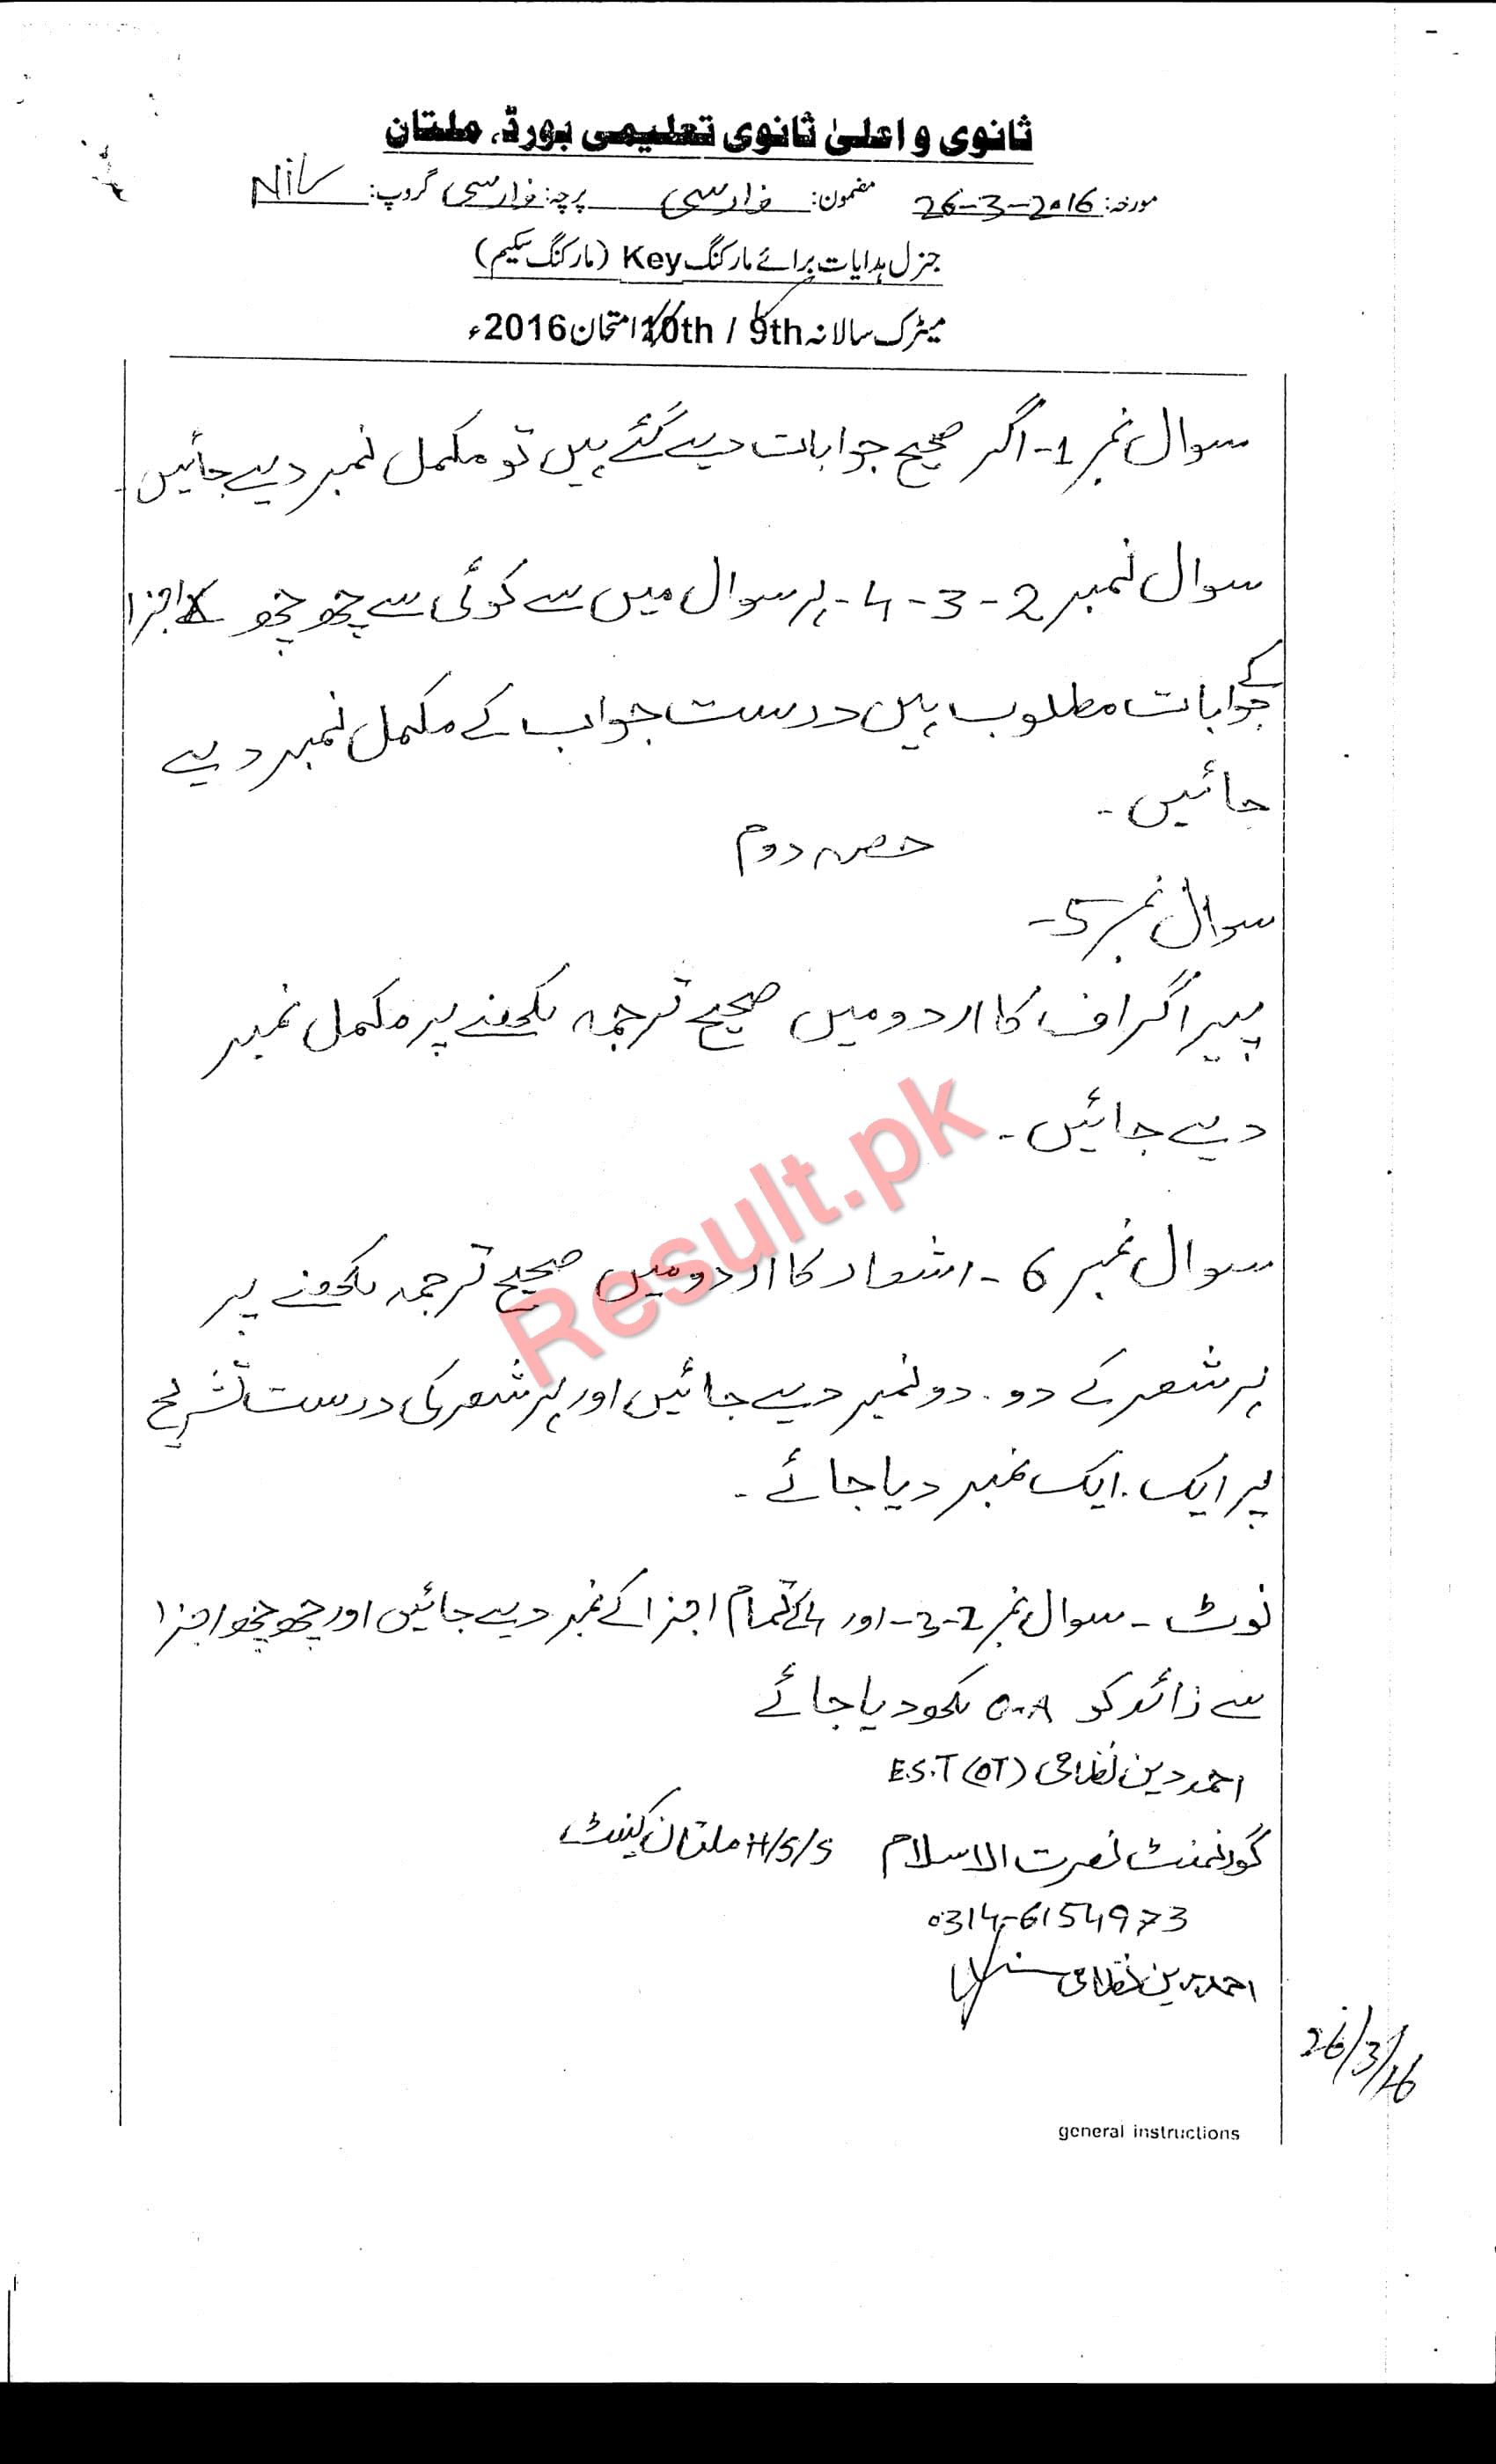 ثانوی و اعلیٰ ثانوی تعلیمی بورڈ، ملتان
مورخہ: 26-3-2016 مضمون: فارسی پرچہ: فارسی گروپ: Nil
جنرل ہدایات برائے مارکنگ Key (مارکنگ سکیم)
میٹرک سالانہ 9th / 10th امتحان 2016ء
سوال نمبر 1- اگر صحیح جوابات دیے گئے ہیں تو مکمل نمبر دیے جائیں۔
سوال نمبر 2 - 3 - 4 - ہر سوال میں سے کوئی سے چھ چھ اجزا
کے جوابات مطلوب ہیں درست جواب کے مکمل نمبر دیے
جائیں۔
حصہ دوم
سوال نمبر 5-
پیراگراف کا اردو میں صحیح ترجمہ لکھنے پر مکمل نمبر
دیے جائیں۔
سوال نمبر 6 - اشعار کا اردو میں صحیح ترجمہ لکھنے پر
ہر شعر کے دو۔ دو نمبر دیے جائیں اور ہر شعر کی درست تشریح
پر ایک۔ ایک نمبر دیا جائے۔
نوٹ - سوال نمبر 2-3- اور 4 کے تمام اجزا کے نمبر دیے جائیں اور چھ چھ اجزا
سے زائد کو O.A لکھ دیا جائے
احمد دین نظامی E.S.T (OT)
گورنمنٹ نصرت الاسلام H/S/S ملتان کینٹ
0314-6154973
احمد دین نظامی
26/3/16
general instructions
Result.pk